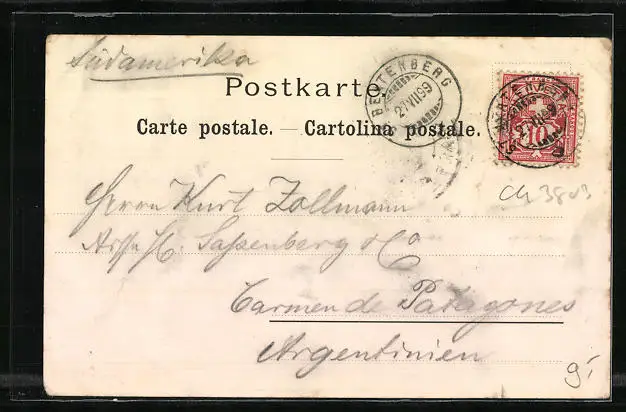 Südamerika
Postkarte.
Carte postale. — Cartolina postale.
BEATENBERG
27 VII 99
10
Herrn Kurt Zollmann
Sassenberg & Co
Carmen de Patagones
Argentinien